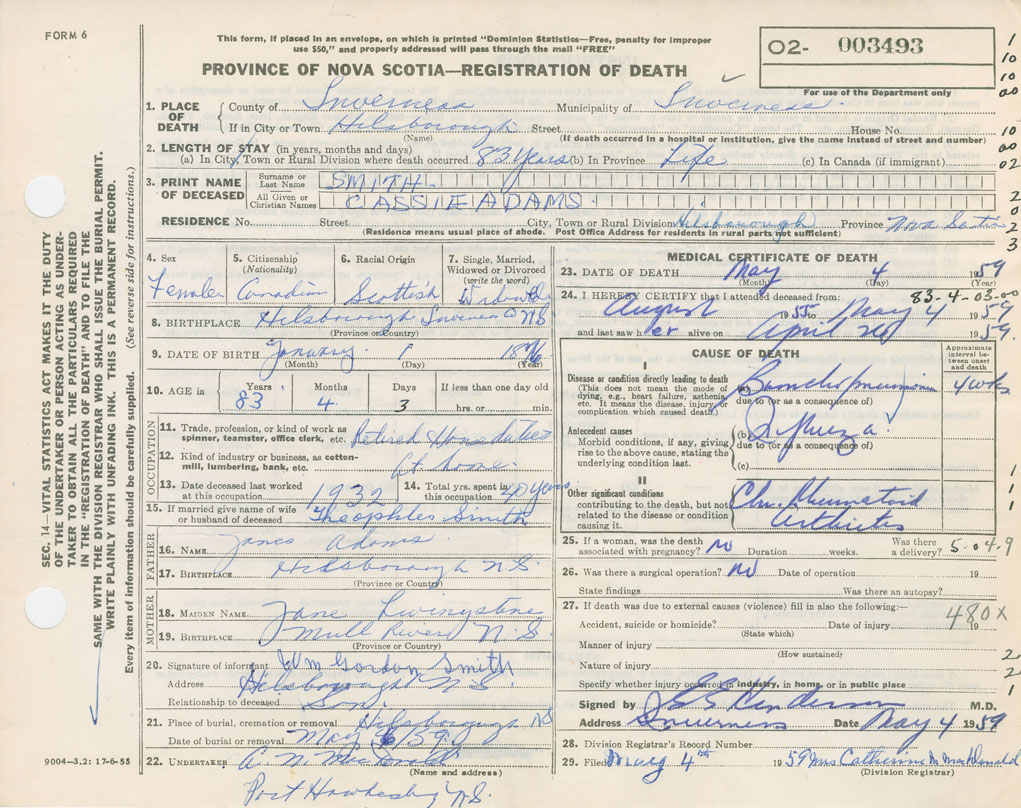 FORM 6
This form, if placed in an envelope, on which is printed "Dominion Statistics—Free, penalty for improper
use $50," and properly addressed will pass through the mail "FREE"
PROVINCE OF NOVA SCOTIA—REGISTRATION OF DEATH
O2- 003493
For use of the Department only
1. PLACE OF DEATH
County of Inverness Municipality of Inverness
If in City or Town Hilsborough Street House No.
(Name) (If death occurred in a hospital or institution, give the name instead of street and number)
2. LENGTH OF STAY (in years, months and days)
(a) In City, Town or Rural Division where death occurred 83 years (b) In Province Life (c) In Canada (if immigrant)
3. PRINT NAME OF DECEASED
Surname or Last Name SMITH
All Given or Christian Names CASSIE ADAMS
RESIDENCE No. Street City, Town or Rural Division Hilsborough Province Nova Scotia
(Residence means usual place of abode. Post Office Address for residents in rural parts not sufficient)
4. Sex Female
5. Citizenship (Nationality) Canadian
6. Racial Origin Scottish
7. Single, Married, Widowed or Divorced (write the word) Widowed
8. BIRTHPLACE Hilsborough Inverness Co NS
(Province or Country)
9. DATE OF BIRTH January 1 1876
(Month) (Day) (Year)
10. AGE in Years 83 Months 4 Days 3 If less than one day old hrs. or min.
OCCUPATION
11. Trade, profession, or kind of work as spinner, teamster, office clerk, etc. Retired House duties
12. Kind of industry or business, as cotton-mill, lumbering, bank, etc. At home
13. Date deceased last worked at this occupation 1932
14. Total yrs. spent in this occupation 40 years
15. If married give name of wife or husband of deceased Theophles Smith
FATHER
16. NAME James Adams
17. BIRTHPLACE Hilsborough N.S.
(Province or Country)
MOTHER
18. MAIDEN NAME Jane Livingstone
19. BIRTHPLACE Mull River N.S.
(Province or Country)
20. Signature of informant Wm Gordon Smith
Address Hilsborough N.S.
Relationship to deceased Son
21. Place of burial, cremation or removal Hilsborough NS
Date of burial or removal May 6
22. UNDERTAKER
(Name and address)
Port Hawkesbury N.S.
MEDICAL CERTIFICATE OF DEATH
23. DATE OF DEATH May 4 1959
(Month) (Day) (Year)
83-4-03-00
24. I HEREBY CERTIFY that I attended deceased from:
August 1955 to May 4 1959
and last saw her alive on April 20 1959.
CAUSE OF DEATH
Approximate interval between onset and death
I
Disease or condition directly leading to death
(This does not mean the mode of dying, e.g., heart failure, asthenia etc. It means the disease, injury, or complication which caused death.)
(a) Bronchopneumonia 4 wks
due to (or as a consequence of)
Antecedent causes
Morbid conditions, if any, giving rise to the above cause, stating the underlying condition last.
(b) Influenza
due to (or as a consequence of)
(c)
II
Other significant conditions
contributing to the death, but not related to the disease or condition causing it.
Chr. Rheumatoid
Arthritis
25. If a woman, was the death associated with pregnancy? No Duration weeks. Was there a delivery?
5-04.9
26. Was there a surgical operation? No Date of operation 19
State findings Was there an autopsy?
27. If death was due to external causes (violence) fill in also the following:—
480X
Accident, suicide or homicide? Date of injury 19
(State which)
Manner of injury
(How sustained)
Nature of injury
Specify whether injury occurred in industry, in home, or in public place
Signed by Henderson M.D.
Address Inverness Date May 4 1959
28. Division Registrar's Record Number
29. Filed May 4th 1959 Mrs Catherine M MacDonald
(Division Registrar)
1
10
10
00
10
00
02
2
0
2
3
1
1
1
2
2
1
SEC. 14—VITAL STATISTICS ACT MAKES IT THE DUTY
OF THE UNDERTAKER OR PERSON ACTING AS UNDER-
TAKER TO OBTAIN ALL THE PARTICULARS REQUIRED
IN THE "REGISTRATION OF DEATH" AND TO FILE THE
SAME WITH THE DIVISION REGISTRAR WHO SHALL ISSUE THE BURIAL PERMIT.
WRITE PLAINLY WITH UNFADING INK. THIS IS A PERMANENT RECORD.
Every item of information should be carefully supplied. (See reverse side for instructions.)
9004—3.2: 17-6-55